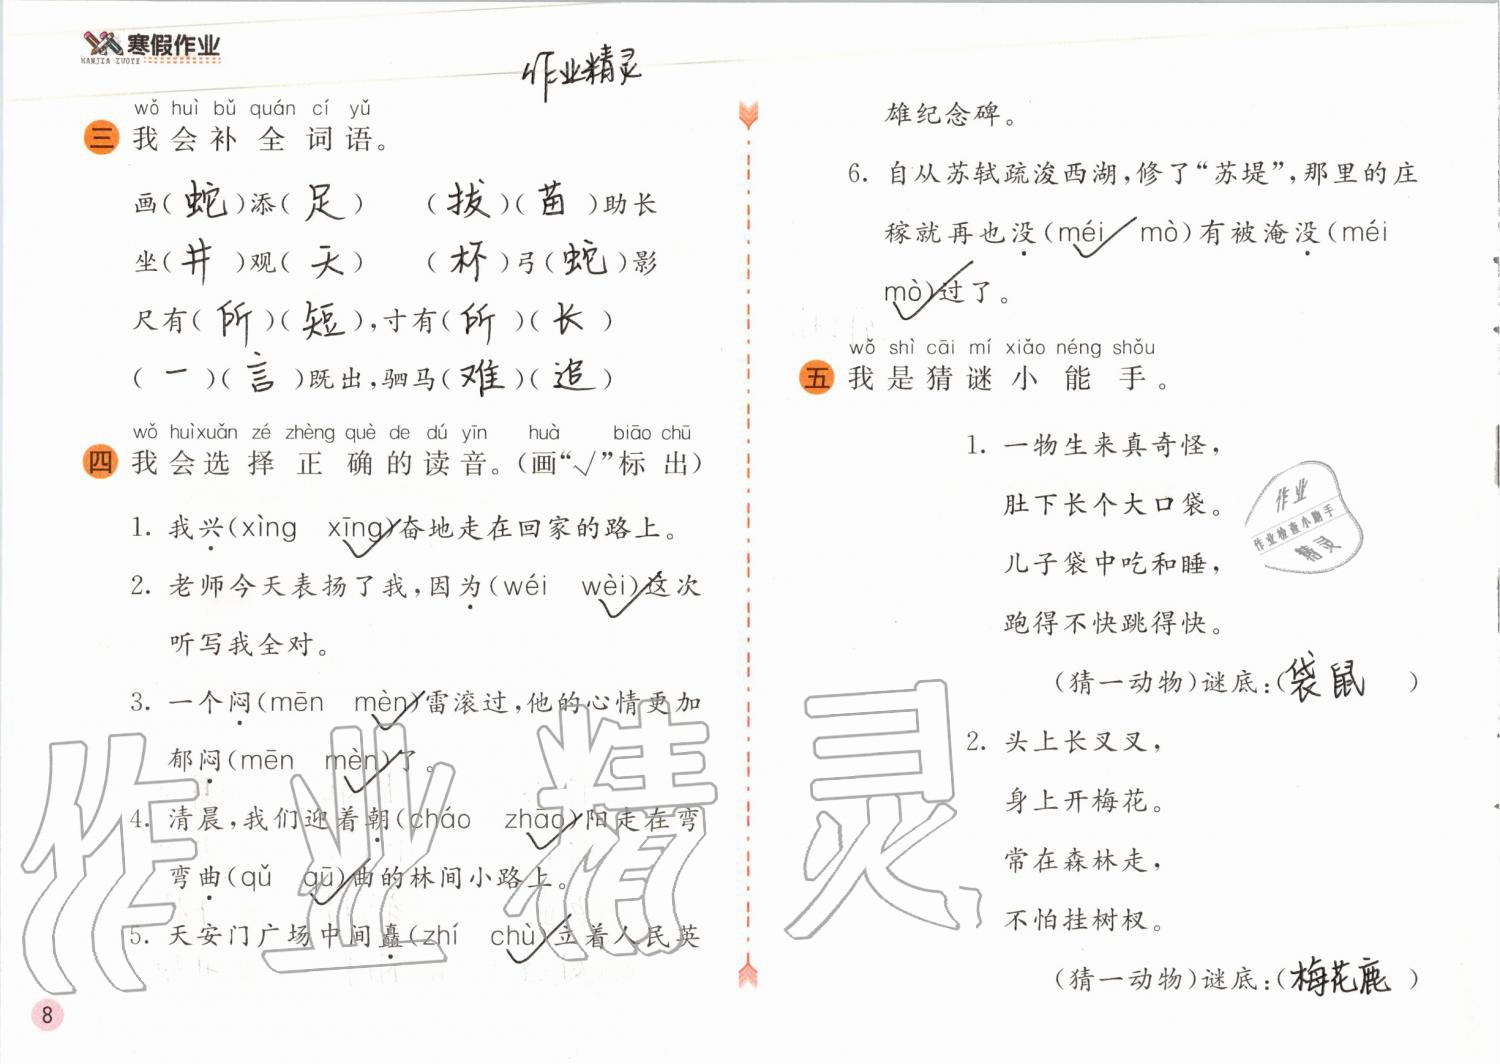 寒假作业
HANJIA ZUOYE
作业精灵
wǒ huì bǔ quán cí yǔ
三 我会补全词语。
画(蛇)添(足) (拔)(苗)助长
坐(井)观(天) (杯)弓(蛇)影
尺有(所)(短),寸有(所)(长)
(一)(言)既出,驷马(难)(追)
wǒ huìxuǎn zé zhèng què de dú yīn huà biāo chū
四 我会选择正确的读音。(画“√”标出)
1. 我兴(xìng xīng√)奋地走在回家的路上。
2. 老师今天表扬了我,因为(wéi wèi√)这次
听写我全对。
3. 一个闷(mēn mèn√)雷滚过,他的心情更加
郁闷(mēn mèn√)了。
4. 清晨,我们迎着朝(cháo zhāo√)阳走在弯
弯曲(qǔ qū√)曲的林间小路上。
5. 天安门广场中间矗(zhí chù√)立着人民英
8
雄纪念碑。
6. 自从苏轼疏浚西湖,修了“苏堤”,那里的庄
稼就再也没(méi√ mò)有被淹没(méi
mò√)过了。
wǒ shì cāi mí xiǎo néng shǒu
五 我是猜谜小能手。
1. 一物生来真奇怪,
肚下长个大口袋。
儿子袋中吃和睡,
跑得不快跳得快。
(猜一动物)谜底:(袋鼠)
2. 头上长叉叉,
身上开梅花。
常在森林走,
不怕挂树杈。
(猜一动物)谜底:(梅花鹿)
作业
作业检查小助手
精灵
作业精灵